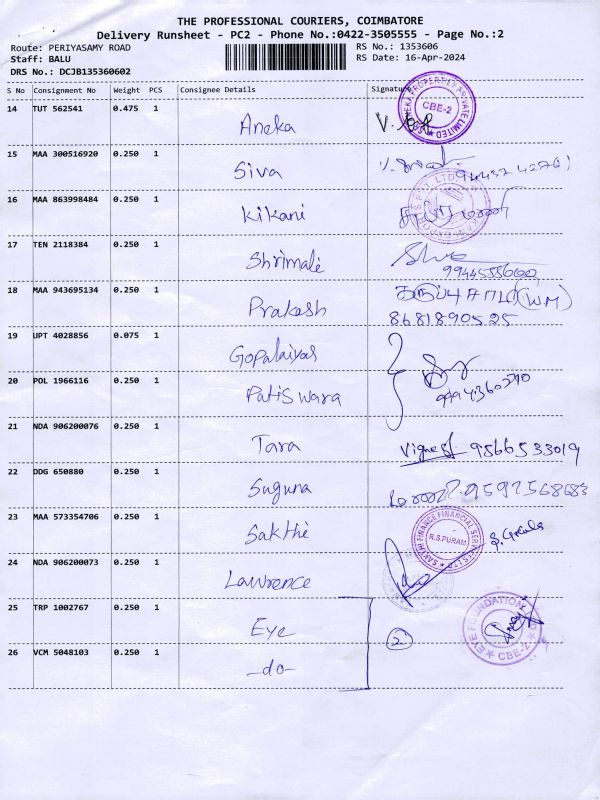 THE PROFESSIONAL COURIERS, COIMBATORE
Delivery Runsheet - PC2 - Phone No.:0422-3505555 - Page No.:2
Route: PERIYASAMY ROAD
Staff: BALU
DRS No.: DCJB135360602
RS No.: 1353606
RS Date: 16-Apr-2024
S No Consignment No Weight PCS Consignee Details Signature
14 TUT 562541 0.475 1 Aneka V.
CBE-2
15 MAA 300516920 0.250 1 Siva
16 MAA 863998484 0.250 1 Kikani
17 TEN 2118384 0.250 1 Shrimale
18 MAA 943695134 0.250 1 Prakash (WM)
8681890525
19 UPT 4028856 0.075 1 Gopalaiyas
20 POL 1966116 0.250 1 Patiswara
21 NDA 906200076 0.250 1 Tara Vignesh 9566533019
22 DDG 650880 0.250 1 Suguna 9592568683
23 MAA 573354706 0.250 1 Sakthi
SAKTHI FINANCE FINANCIAL SERVICES LTD
R.S.PURAM
24 NDA 906200073 0.250 1 Lawrence
25 TRP 1002767 0.250 1 Eye
EYE FOUNDATION
CBE-2
26 VCM 5048103 0.250 1 -do- 2